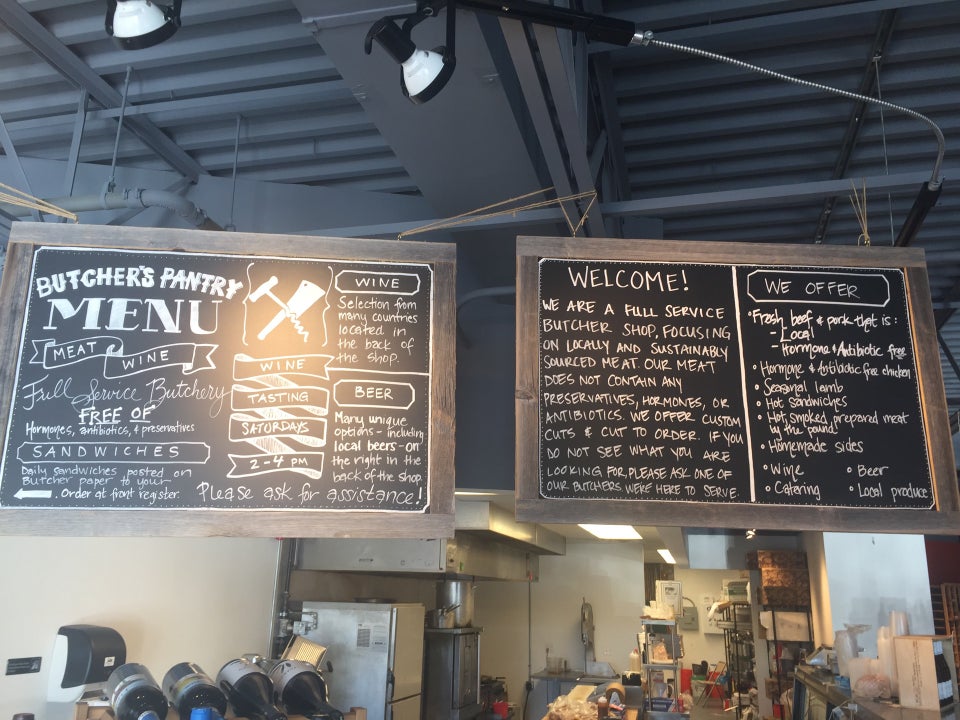 BUTCHER'S PANTRY
MENU
MEAT WINE
Full Service Butchery
FREE OF
Hormones, antibiotics, & preservatives
SANDWICHES
Daily sandwiches posted on
Butcher paper to your
Order at front register.
WINE
TASTING
SATURDAYS
2-4 PM
Please ask for assistance!
WINE
Selection from
many countries
located in
the back of
the shop.
BEER
Many unique
options - including
local beers - on
the right in the
back of the shop
WELCOME!
WE ARE A FULL SERVICE
BUTCHER SHOP, FOCUSING
ON LOCALLY AND SUSTAINABLY
SOURCED MEAT. OUR MEAT
DOES NOT CONTAIN ANY
PRESERVATIVES, HORMONES, OR
ANTIBIOTICS. WE OFFER CUSTOM
CUTS & CUT TO ORDER. IF YOU
DO NOT SEE WHAT YOU ARE
LOOKING FOR, PLEASE ASK ONE OF
OUR BUTCHERS. WE'RE HERE TO SERVE.
WE OFFER
• Fresh beef & pork that is:
- Local
- Hormone & Antibiotic free
• Hormone & Antibiotic free chicken
• Seasonal lamb
• Hot sandwiches
• Hot smoked, prepared meat
by the pound
• Homemade sides
• Wine • Beer
• Catering • Local produce